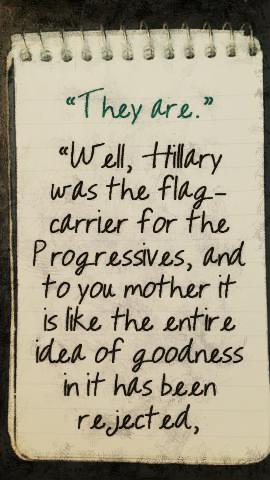 “They are.”
“Well, Hillary
was the flag-
carrier for the
Progressives, and
to you mother it
is like the entire
idea of goodness
in it has been
rejected,